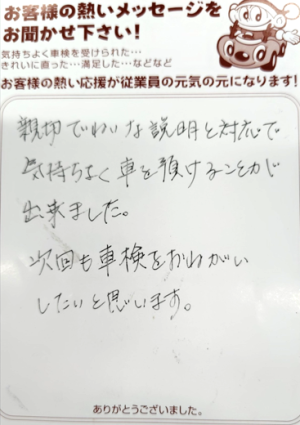 お客様の熱いメッセージを
お聞かせ下さい！
気持ちよく車検を受けられた…
きれいに直った…満足した…などなど
お客様の熱い応援が従業員の元気の元になります！
親切でねいな説明と対応で
気持ちよく車を預けることが
出来ました。
次回も車検をおねがい
したいと思います。
ありがとうございました。